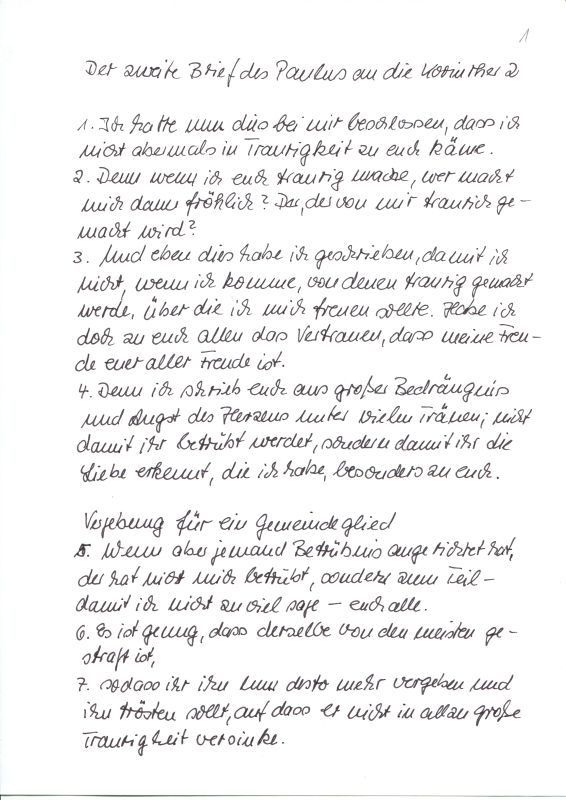 1
Der zweite Brief des Paulus an die Korinther 2
1. Ich hatte nun dies bei mir beschlossen, dass ich
nicht abermals in Traurigkeit zu euch käme.
2. Denn wenn ich euch traurig mache, wer macht
mich dann fröhlich? Der, der von mir traurich ge-
macht wird?
3. Und eben dies habe ich geschrieben, damit ich
nicht, wenn ich komme, von denen traurig gemacht
werde, über die ich mich freuen sollte. Habe ich
doch zu euch allen das Vertrauen, dass meine Freu-
de euer aller Freude ist.
4. Denn ich schrieb euch aus großer Bedrängnis
und Angst des Herzens unter vielen Tränen; nicht
damit ihr betrübt werdet, sondern damit ihr die
Liebe erkennt, die ich habe, besonders zu euch.
Vergebung für ein Gemeindeglied
5. Wenn aber jemand Betrübnis angerichtet hat,
der hat nicht mich betrübt, sondern zum Teil -
damit ich nicht zu viel sage - euch alle.
6. Es ist genug, dass derselbe von den meisten ge-
straft ist,
7. sodass ihr ihm nun desto mehr vergeben und
ihn trösten sollt, auf dass er nicht in allzu große
Traurigkeit versinke.